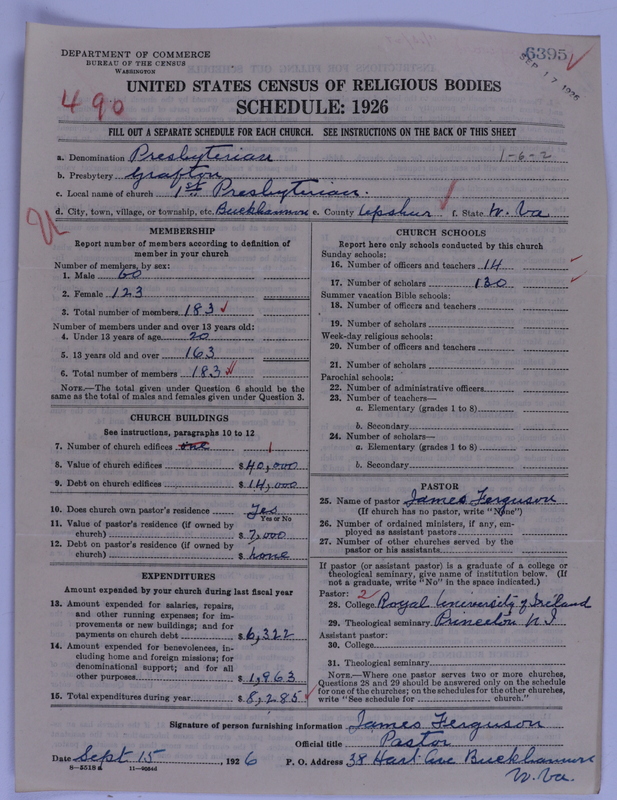 DEPARTMENT OF COMMERCE
BUREAU OF THE CENSUS
WASHINGTON
6395
SEP 17 1926
490
UNITED STATES CENSUS OF RELIGIOUS BODIES
SCHEDULE: 1926
FILL OUT A SEPARATE SCHEDULE FOR EACH CHURCH. SEE INSTRUCTIONS ON THE BACK OF THIS SHEET
a. Denomination Presbyterian 1-6-2
b. Presbytery Grafton
c. Local name of church 1st Presbyterian.
d. City, town, village, or township, etc. Buckhannon e. County Upshur f. State W. Va
MEMBERSHIP
Report number of members according to definition of member in your church
Number of members, by sex:
1. Male 60
2. Female 123
3. Total number of members 183
Number of members under and over 13 years old:
4. Under 13 years of age 20
5. 13 years old and over 163
6. Total number of members 183
NOTE.—The total given under Question 6 should be the
same as the total of males and females given under Question 3.
CHURCH BUILDINGS
See instructions, paragraphs 10 to 12
7. Number of church edifices one 1
8. Value of church edifices $40,000
9. Debt on church edifices $14,000
10. Does church own pastor's residence Yes
Yes or No
11. Value of pastor's residence (if owned by
church) $7,000
12. Debt on pastor's residence (if owned by
church) $none
EXPENDITURES
Amount expended by your church during last fiscal year
13. Amount expended for salaries, repairs,
and other running expenses; for im-
provements or new buildings; and for
payments on church debt $6,322
14. Amount expended for benevolences, in-
cluding home and foreign missions; for
denominational support; and for all
other purposes $1,963
15. Total expenditures during year $8,285
CHURCH SCHOOLS
Report here only schools conducted by this church
Sunday schools:
16. Number of officers and teachers 14
17. Number of scholars 130
Summer vacation Bible schools:
18. Number of officers and teachers
19. Number of scholars
Week-day religious schools:
20. Number of officers and teachers
21. Number of scholars
Parochial schools:
22. Number of administrative officers
23. Number of teachers—
a. Elementary (grades 1 to 8)
b. Secondary
24. Number of scholars—
a. Elementary (grades 1 to 8)
b. Secondary
PASTOR
25. Name of pastor James Ferguson
(If church has no pastor, write "None")
26. Number of ordained ministers, if any, em-
ployed as assistant pastors
27. Number of other churches served by the
pastor or his assistants
If pastor (or assistant pastor) is a graduate of a college or
theological seminary, give name of institution below. (If
not a graduate, write "No" in the space indicated.)
Pastor: 2
28. College Royal University of Ireland
29. Theological seminary Princeton NJ
Assistant pastor:
30. College
31. Theological seminary
NOTE.—Where one pastor serves two or more churches,
Questions 28 and 29 should be answered only on the schedule
for one of the churches; on the schedules for the other churches,
write "See schedule for church."
Signature of person furnishing information James Ferguson
Official title Pastor
Date Sept 15, 1926 P. O. Address 38 Hart Ave Buckhannon
W. Va.
8—5518a 11—9054d